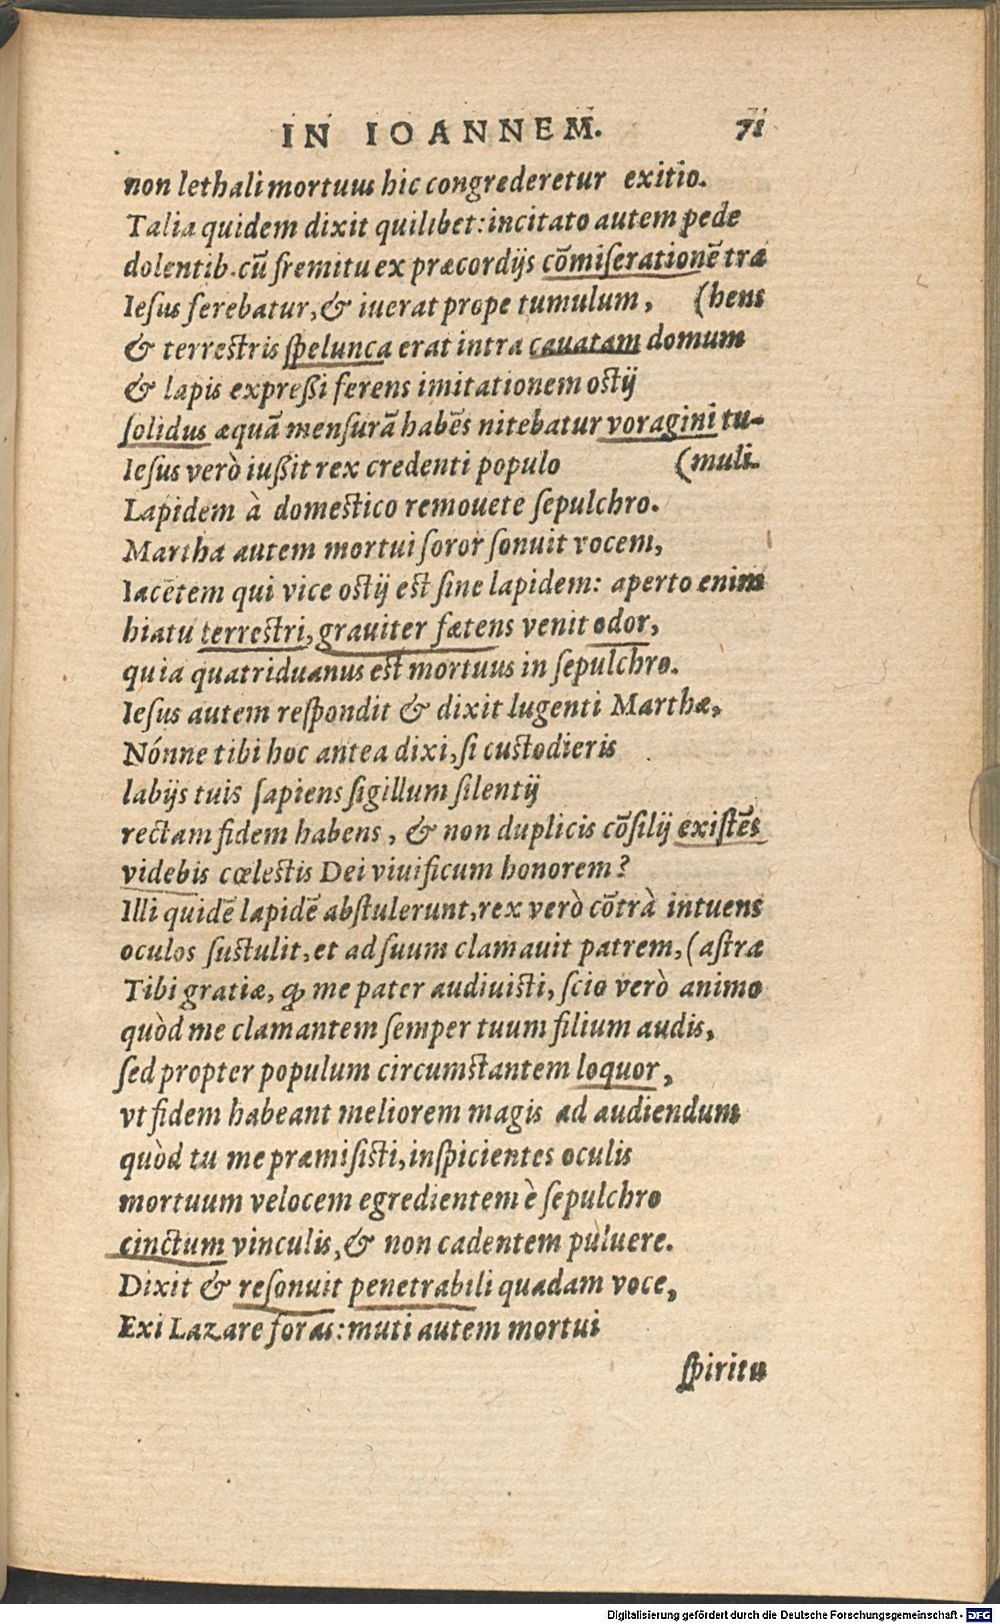 IN IOANNEM. 71
non lethali mortuus hic congrederetur exitio.
Talia quidem dixit quilibet: incitato autem pede
dolentib. cū fremitu ex præcordijs cōmiserationē tra
Iesus ferebatur, & iuerat prope tumulum, (hens
& terrestris spelunca erat intra cauatam domum
& lapis expreßi ferens imitationem ostij
solidus æquā mensurā habēs nitebatur voragini tu-
Iesus verò iußit rex credenti populo (muli.
Lapidem à domestico remouete sepulchro.
Martha autem mortui soror sonuit vocem,
Iacētem qui vice ostij est sine lapidem: aperto enim
hiatu terrestri, grauiter fœtens venit odor,
quia quatriduanus est mortuus in sepulchro.
Iesus autem respondit & dixit lugenti Marthæ,
Nónne tibi hoc antea dixi, si custodieris
labijs tuis sapiens sigillum silentij
rectam fidem habens, & non duplicis cōsilij existēs
videbis cœlestis Dei viuificum honorem?
Illi quidē lapidē abstulerunt, rex verò cōtrà intuens
oculos sustulit, et ad suum clamauit patrem, (astra
Tibi gratiæ, ꝙ me pater audiuisti, scio verò animo
quòd me clamantem semper tuum filium audis,
sed propter populum circumstantem loquor,
vt fidem habeant meliorem magis ad audiendum
quòd tu me præmisisti, inspicientes oculis
mortuum velocem egredientem è sepulchro
cinctum vinculis, & non cadentem puluere.
Dixit & resonuit penetrabili quadam voce,
Exi Lazare foras: muti autem mortui
spiritu
Digitalisierung gefördert durch die Deutsche Forschungsgemeinschaft - DFG